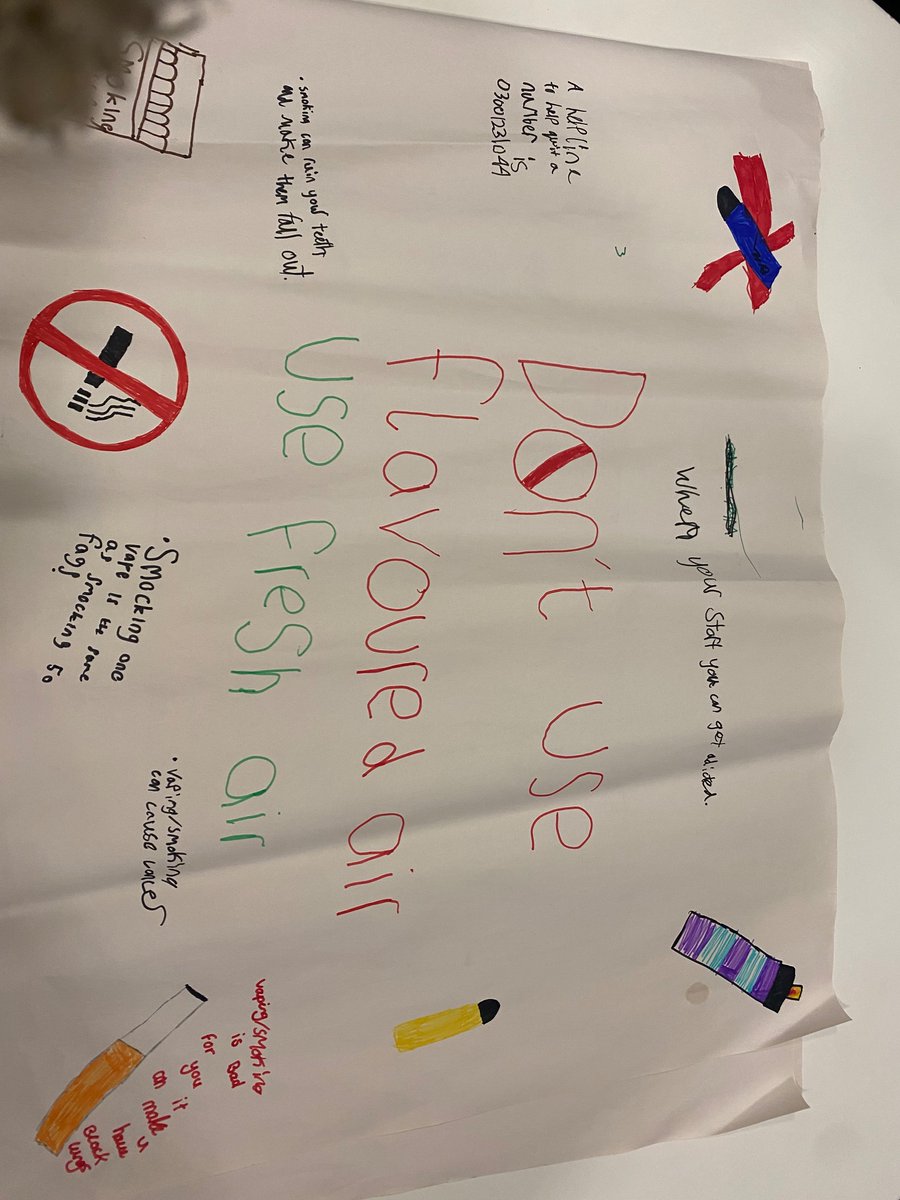 When your Start you can get adicted.
A helpline
to help quit a
number is
03001231044
3
Don't use
flavoured air
use fresh air
• smoking can ruin your teeth
an make them fall out.
Smoking
• Smocking one
vape is the same
as smocking 50
fags
• Vaping/smoking
can cause cancer
vaping/smoking
is Bad
for you it
can make u
have
BLack
lungs